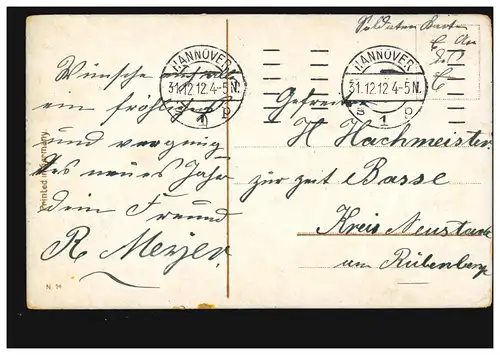 Soldaten Karte
HANNOVER
31.12.12.4-5N.
S 1 p
HANNOVER
31.12.12.4-5N.
S 1 p
Wünsche
ein fröhliches
und vergnügtes
neues Jahr
dein Freund
R. Meyer
Printed in Germany
N. 14
Gefreiten
H Hachmeister
zur zeit Basse
Kreis Neustadt
am Rübenberg